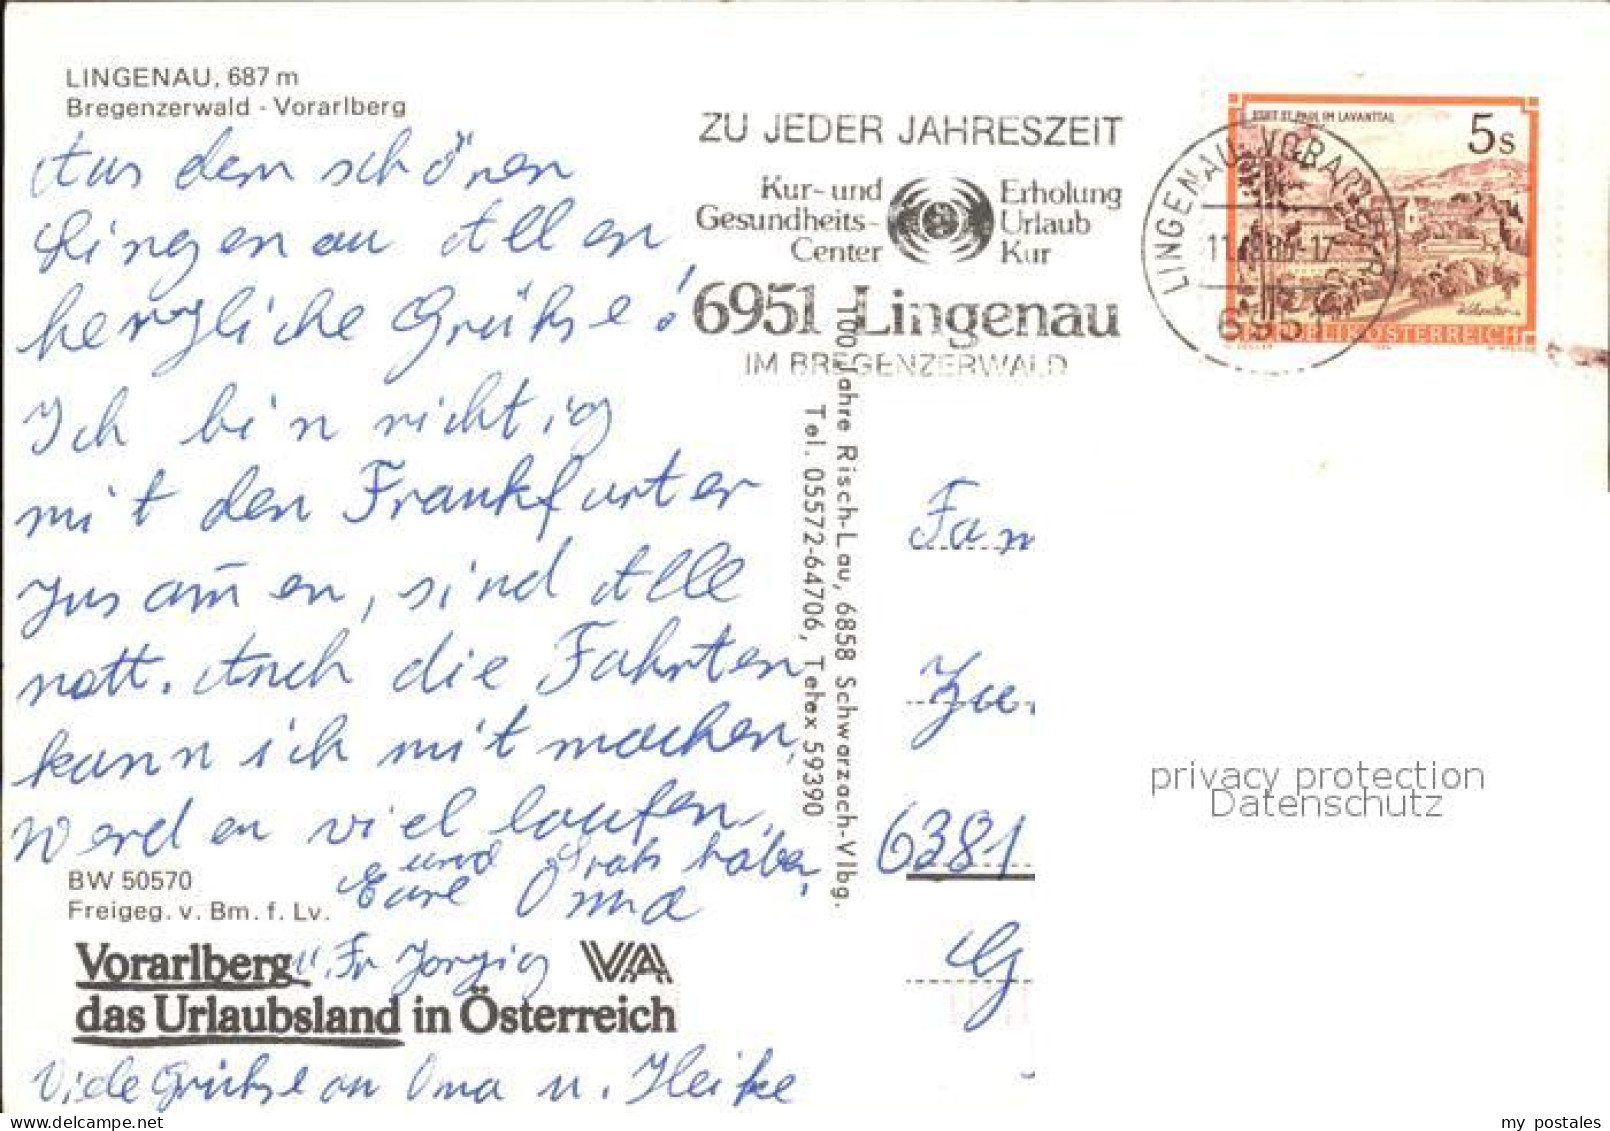 LINGENAU, 687 m
Bregenzerwald - Vorarlberg
Aus dem schönen
Lingenau Allen
herzliche Grüße!
Ich bin richtig
mit den Frankfurter
zusam̄en, sind Alle
nett. Auch die Fahrten
kann ich mit machen,
werden viel laufen,
und Spaß haben,
Eure Oma
u. Fr
BW 50570
Freigeg. v. Bm. f. Lv.
Vorarlberg VA
das Urlaubsland in Österreich
Viele Grüße an Oma u. Heike
100 Jahre Risch-Lau, 6858 Schwarzach-Vlbg.
Tel. 05572-64706, Telex 59390
ZU JEDER JAHRESZEIT
Kur- und
Gesundheits-
Center
Erholung
Urlaub
Kur
6951 Lingenau
IM BREGENZERWALD
LINGENAU, VORARLBERG
6951
STIFT ST. PAUL IM LAVANTTAL
5s
REPUBLIK ÖSTERREICH
Fam
Zur
6381
G
privacy protection
Datenschutz
my postales
delcampe.net